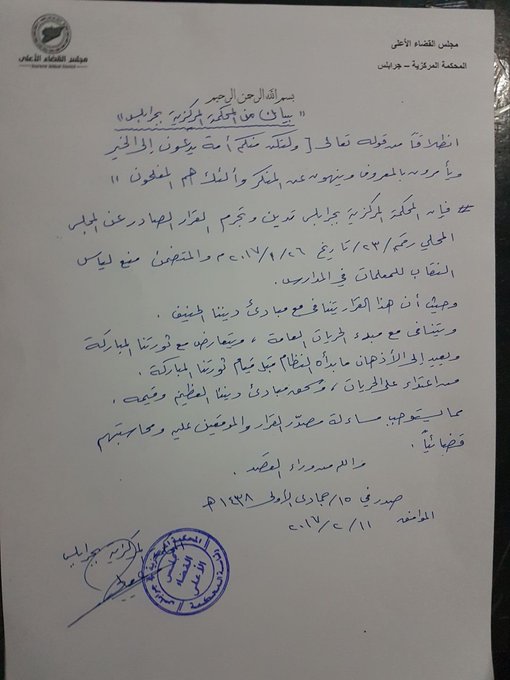 مجلس القضاء الأعلى
المحكمة المركزية – جرابلس
مجلس القضاء الأعلى
بسم الله الرحمن الرحيم
" بيان من المحكمة المركزية بجرابلس "
انطلاقاً من قوله تعالى [ ولتكن منكم أمة يدعون إلى الخير
ويأمرون بالمعروف وينهون عن المنكر وأولئك هم المفلحون "
# فإن المحكمة المركزية بجرابلس تدين وتجرم القرار الصادر عن المجلس
المحلي رقم /٢٣/ تاريخ ٢٠١٧/١/٢٦ م والمتضمن منع لباس
النقاب للمعلمات في المدارس.
وحيث أن هذا القرار يتنافى مع مبادئ ديننا الحنيف .
ويتنافى مع مبدء الحريات العامة ، ويتعارض مع ثورتنا المباركة
ويعيد إلى الأذهان ما بدأه النظام قبل قيام ثورتنا المباركة .
من اعتداء على الحريات ، وسحق مبادئ ديننا العظيم وقيمه .
مما يستوجب مساءلة مصدر القرار والموقعين عليه ومحاسبتهم
قضائياً .
والله من وراء القصد .
صدر في ١٥/ جمادى الأولى ١٤٣٨ هـ
الموافق ٢٠١٧/٢/١١
المركزية بجرابلس
مجلس القضاء الأعلى